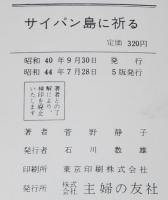 サイパン島に祈る
定価 320円
昭和 40年9月30日 発行
昭和 44年7月28日 5版発行
著者との了
解により、
検印を廃止
いたします
著者 菅野静子
発行者 石川数雄
印刷所 東京印刷株式会社
発行所 株式会社 主婦の友社